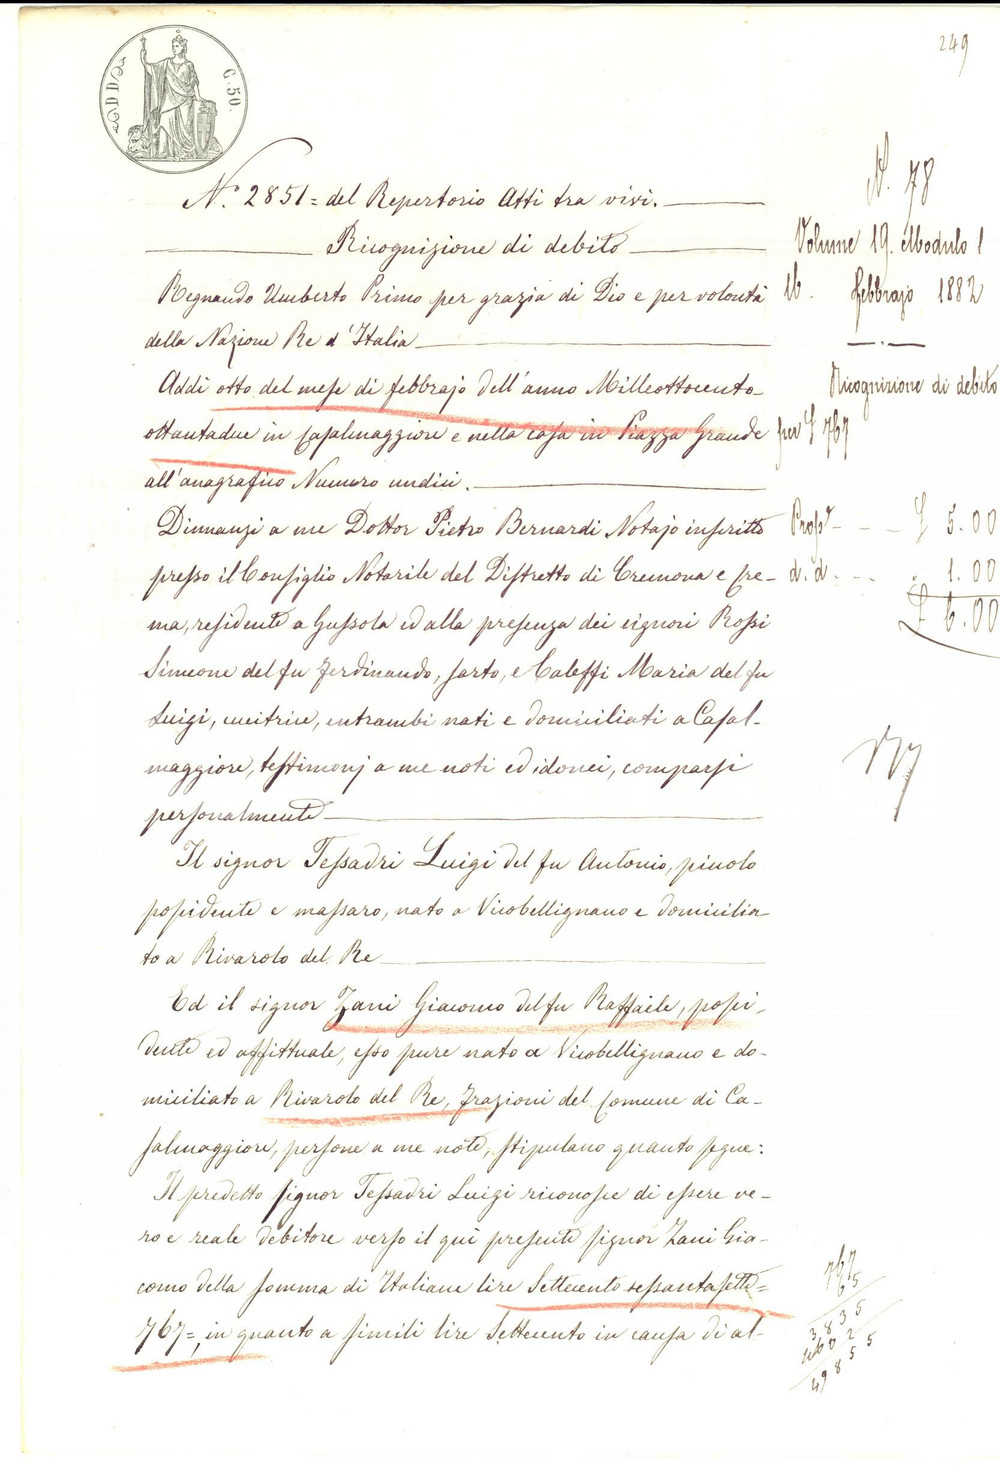 249
DD
C. 50.
N.º 2851= del Repertorio Atti tra vivi.
Ricognizione di debito
Regnando Umberto Primo per grazia di Dio e per volontà
della Nazione Re d'Italia
Addi otto del mese di febbrajo dell'anno Milleottocento-
ottantadue in Casalmaggiore e nella casa in Piazza Grande
all'anagrafico Numero undici.
Dinnanzi a me Dottor Pietro Bernardi Notajo inscritto
presso il Consiglio Notarile del Distretto di Cremona e Cre-
ma, residente a Gussola ed alla presenza dei signori Rossi
Simeone del fu Ferdinando, sarto, e Caleffi Maria del fu
Luigi, cucitrice, entrambi nati e domiciliati a Casal-
maggiore, testimonj a me noti ed idonei, comparsi
personalmente
Il signor Tessadri Luigi del fu Antonio, piccolo
possidente e massaro, nato a Vicobellignano e domicilia-
to a Rivarolo del Re
Ed il signor Zani Giacomo del fu Raffaele, possi-
dente ed affittuale, esso pure nato a Vicobellignano e do-
miciliato a Rivarolo del Re, frazioni del Comune di Ca-
salmaggiore, persone a me note, stipulano quanto segue:
Il predetto signor Tessadri Luigi riconosce di essere ve-
ro e reale debitore verso il quì presente signor Zani Gia-
como della somma di Italiane lire Settecento sessantasette=
767=, in quanto a simili lire Settecento in causa di al-
N. 78
Volume 19. Modulo 1
16. febbrajo 1882
Ricognizione di debito
per £ 767
Prop.e - - - £ 5.00
d. d. - - - 1.00
£ 6.00
767
65
3835
4602
49855